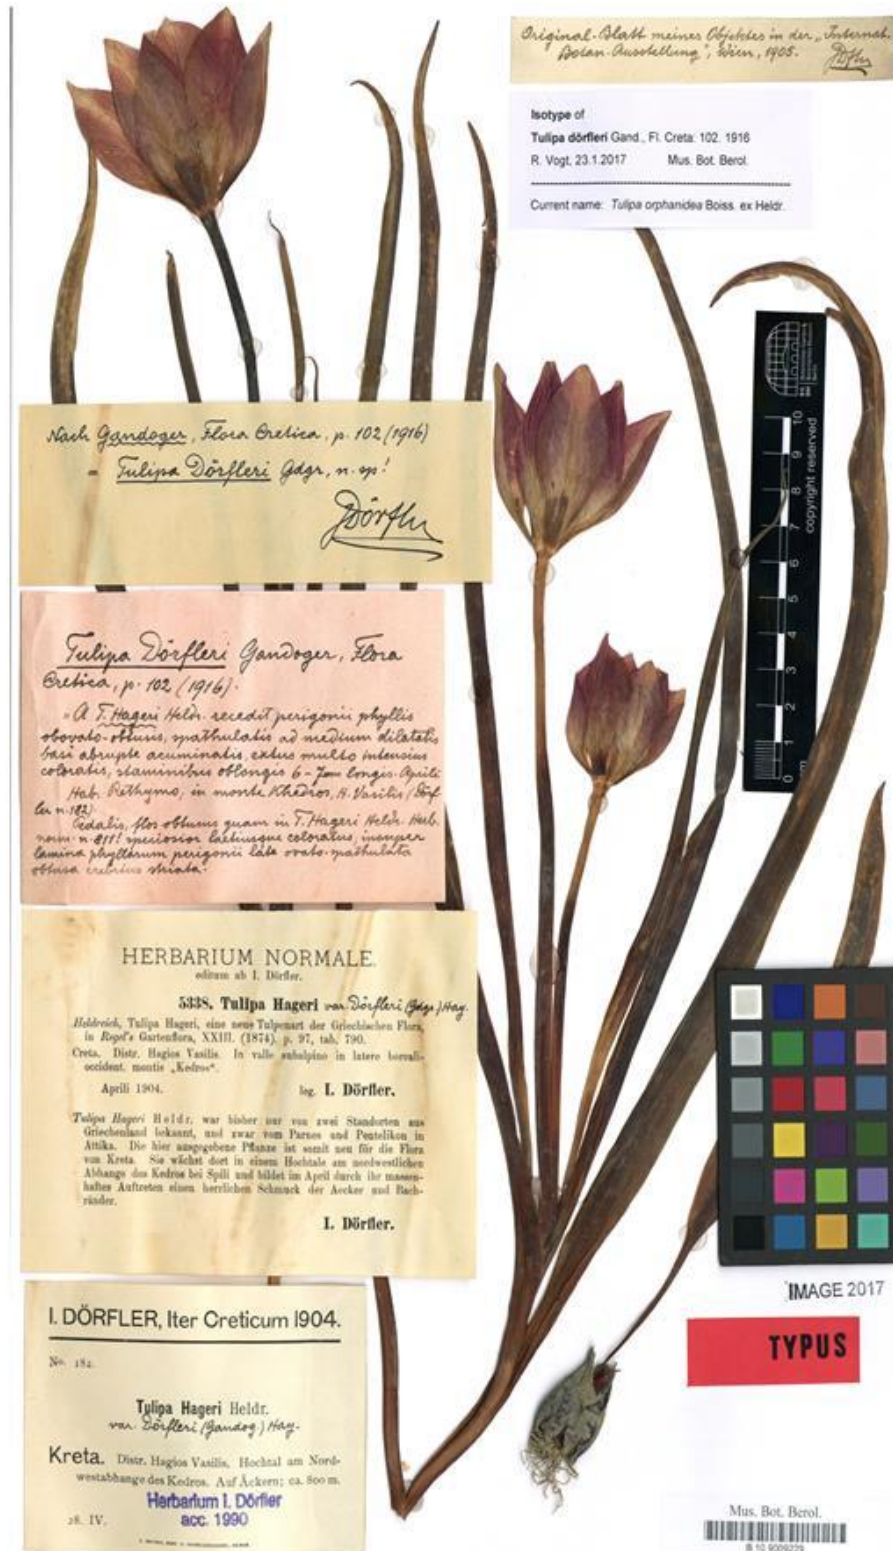 Original-Blatt meines Objektes in der „Internat.
Botan. Ausstellung", Wien, 1905.
Isotype of
Tulipa dörfleri Gand., Fl. Creta: 102. 1916
R. Vogt, 23.1.2017 Mus. Bot. Berol.
Current name: Tulipa orphanidea Boiss. ex Heldr.
Nach Gandoger, Flora Cretica, p. 102 (1916)
= Tulipa Dörfleri Gdgr, n. sp!
JDörfler
10
9
8
7
6
5
4
3
2
1
0
cm
copyright reserved
Tulipa Dörfleri Gandoger, Flora
Cretica, p. 102 (1916).
"A T. Hageri Heldr. recedit perigonii phyllis
obovato-obtusis, spathulatis ad medium dilatatis
basi abrupte acuminatis, extus multo intensius
coloratis, staminibus oblongis 6-7mm longis. Aprili
Hab. Rethymo, in monte Khedros, H. Vasilis (Dörf
ler n. 182)
flos obtusus quam in T. Hageri Heldr. Herb.
norm. n. 811! speciosior laetiusque coloratus, insuper
lamina phyllorum perigonii late ovato-spathulata
obtusa crebrius striata.
HERBARIUM NORMALE.
editum ab I. Dörfler.
5338. Tulipa Hageri var. Dörfleri (Gdgr.) Hay.
Heldreich, Tulipa Hageri, eine neue Tulpenart der Griechischen Flora,
in Regel's Gartenflora, XXIII. (1874). p. 97, tab. 790.
Creta. Distr. Hagios Vasilis. In valle subalpino in latere boreali-
occident. montis „Kedros".
Aprili 1904. leg. I. Dörfler.
Tulipa Hageri Heldr. war bisher nur von zwei Standorten aus
Griechenland bekannt, und zwar vom Parnes und Pentelikon in
Attika. Die hier ausgegebene Pflanze ist somit neu für die Flora
von Kreta. Sie wächst dort in einem Hochtale am nordwestlichen
Abhange des Kedros bei Spili und bildet im April durch ihr massen-
haftes Auftreten einen herrlichen Schmuck der Aecker und Bach-
ränder.
I. Dörfler.
I. DÖRFLER, Iter Creticum 1904.
No. 182.
Tulipa Hageri Heldr.
var. Dörfleri (Gandog.) Hay.
Kreta. Distr. Hagios Vasilis. Hochtal am Nord-
westabhange des Kedros. Auf Äckern; ca. 800 m.
28. IV.
Herbarium I. Dörfler
acc. 1990
IMAGE 2017
TYPUS
Mus. Bot. Berol.
B 10 9009229